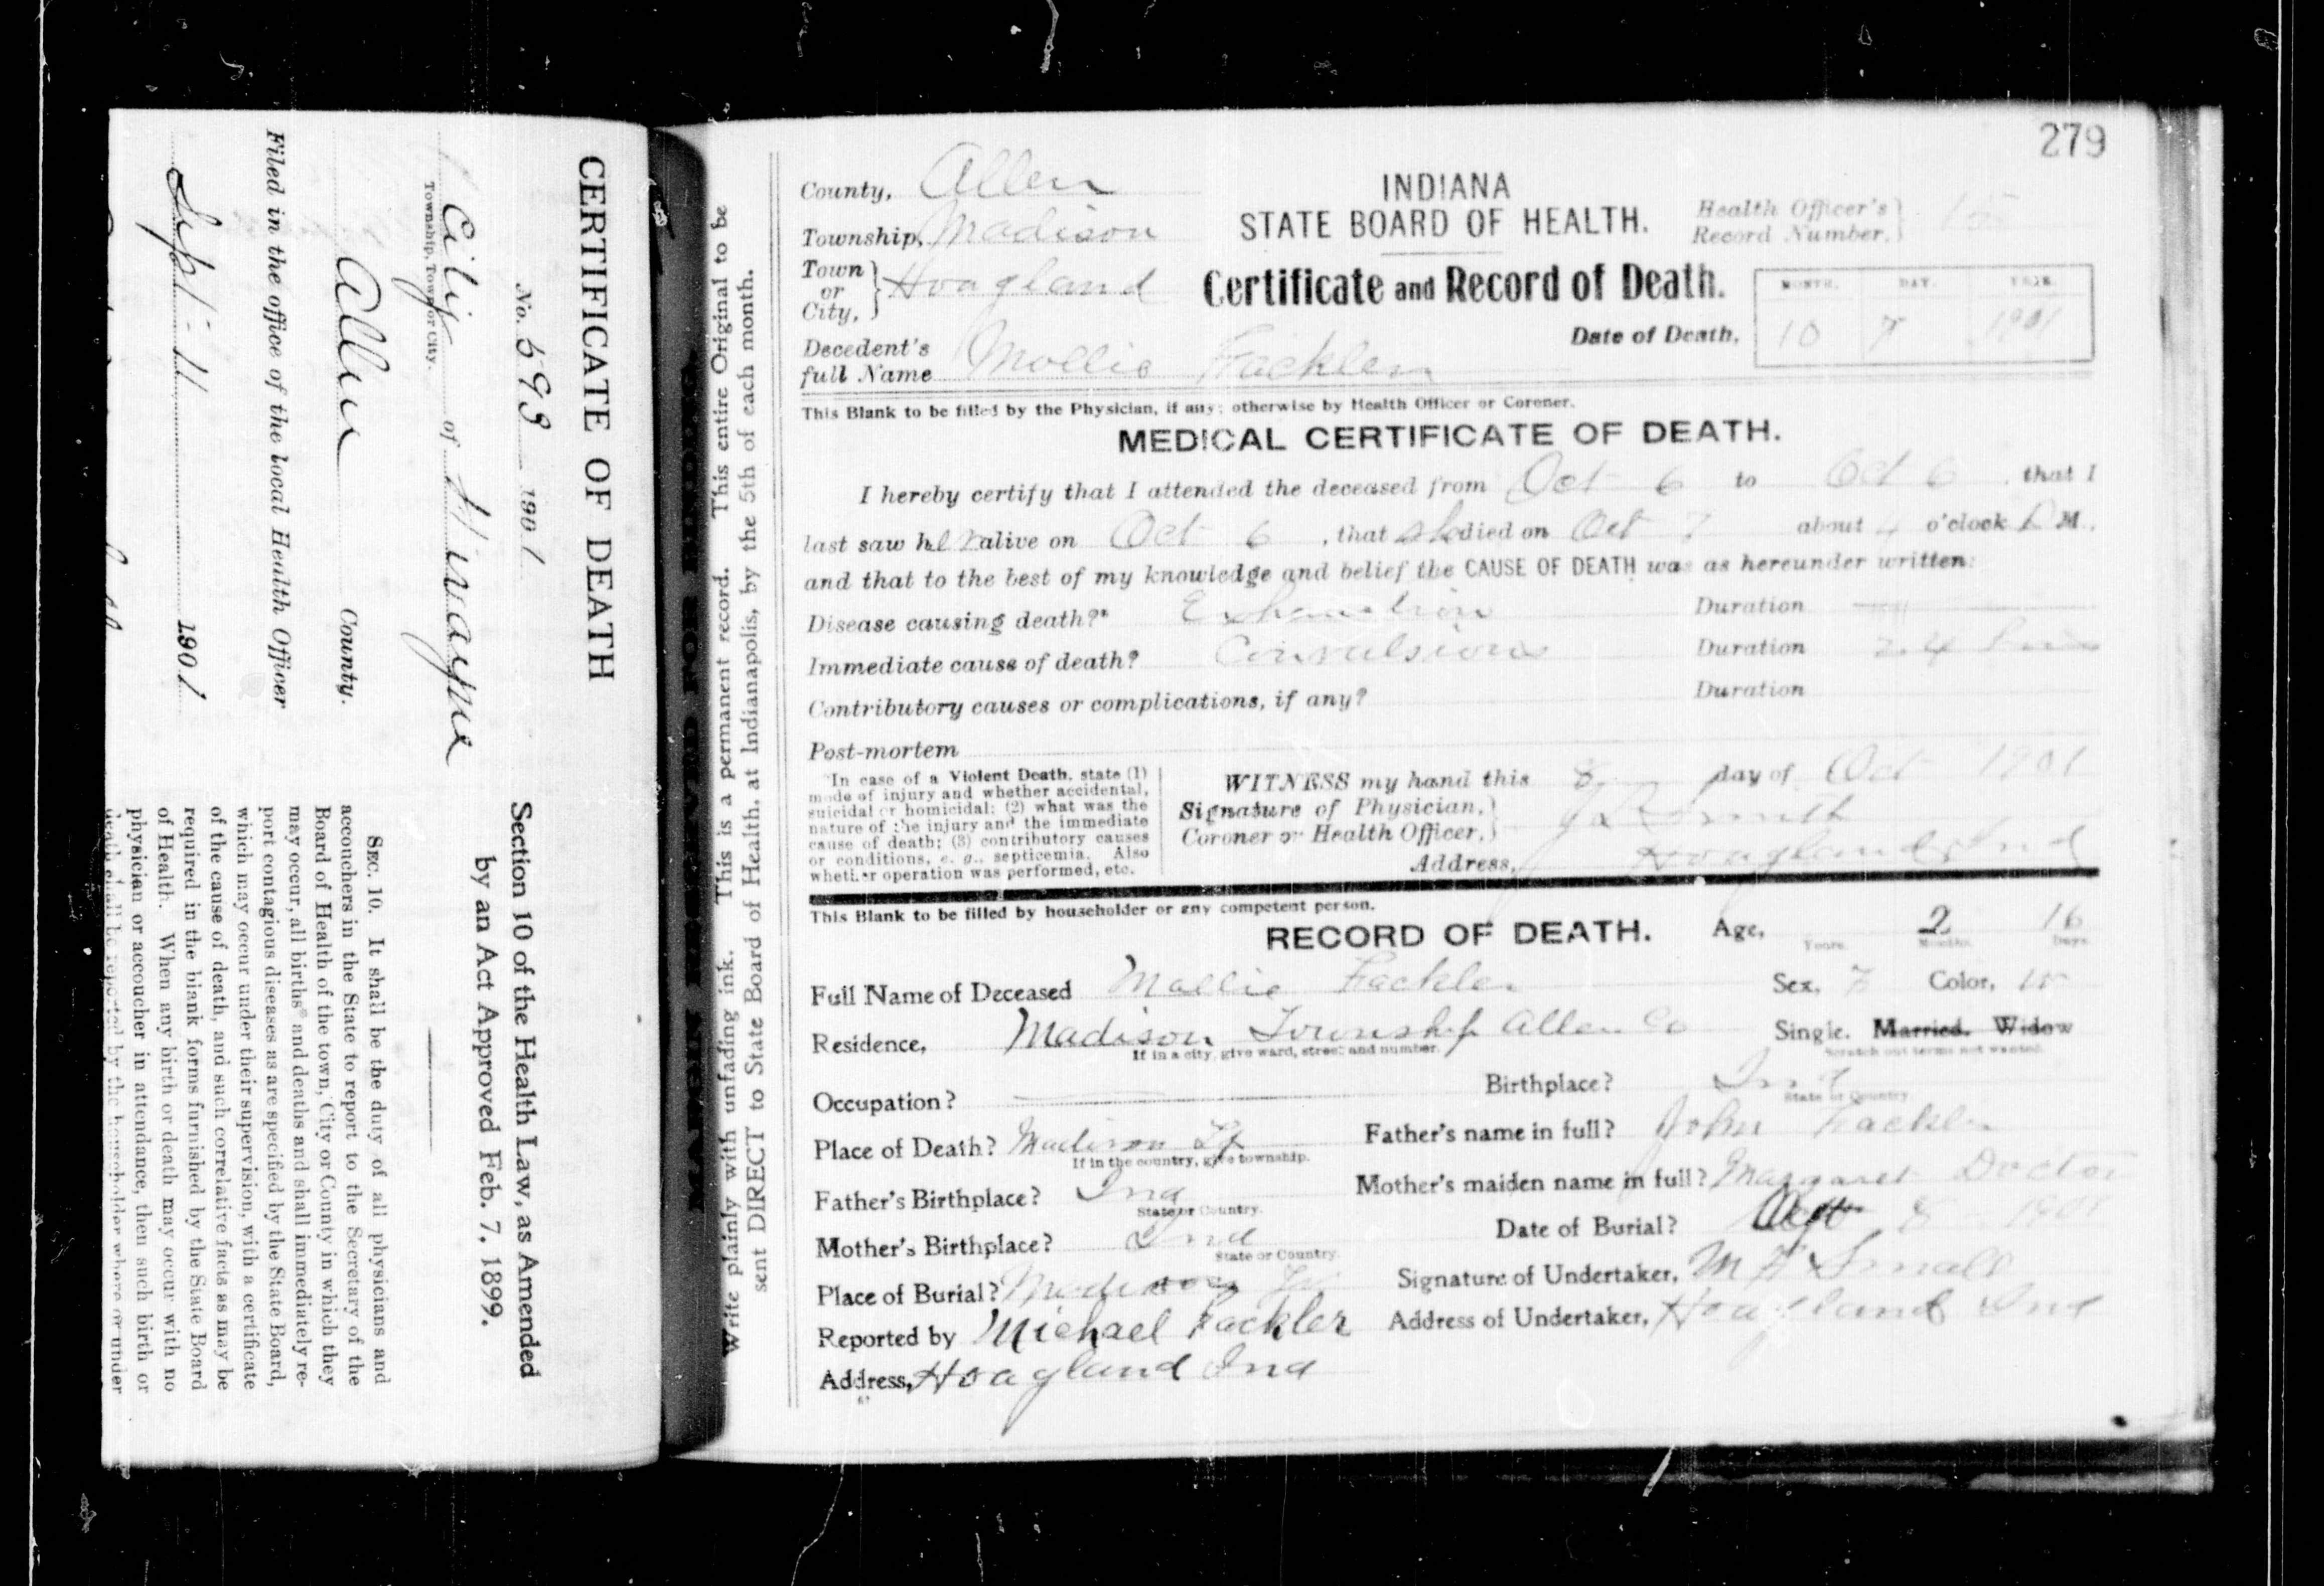 CERTIFICATE OF DEATH
No. 593 1901
City of Ft Wayne
Township, Town or City.
Allen County.
Filed in the office of the local Health Officer
Sept 11 1901
Section 10 of the Health Law, as Amended
by an Act Approved Feb. 7, 1899.
SEC. 10. It shall be the duty of all physicians and
accouchers in the State to report to the Secretary of the
Board of Health of the town, City or County in which they
may occur, all births and deaths and shall immediately re-
port contagious diseases as are specified by the State Board,
which may occur under their supervision, with a certificate
of the cause of death, and such correlative facts as may be
required in the blank forms furnished by the State Board
of Health. When any birth or death may occur with no
physician or accoucher in attendance, then such birth or
death shall be reported by the householder where or under
Write plainly with unfading ink. This is a permanent record. This entire Original to be
sent DIRECT to State Board of Health, at Indianapolis, by the 5th of each month.
279
County, Allen
Township, Madison
Town or City, Hoagland
INDIANA
STATE BOARD OF HEALTH.
Health Officer's Record Number. 15
Certificate and Record of Death.
MONTH. DAY. YEAR.
Date of Death, 10 7 1901
Decedent's full Name Mollie Fackler
This Blank to be filled by the Physician, if any; otherwise by Health Officer or Coroner.
MEDICAL CERTIFICATE OF DEATH.
I hereby certify that I attended the deceased from Oct 6 to Oct 6, that I
last saw her alive on Oct 6, that she died on Oct 7 about 4 o'clock M.
and that to the best of my knowledge and belief the CAUSE OF DEATH was as hereunder written:
Disease causing death?* Exhaustion Duration
Immediate cause of death? Convulsions Duration 24 hours
Contributory causes or complications, if any? Duration
Post-mortem
*In case of a Violent Death, state (1)
mode of injury and whether accidental,
suicidal or homicidal; (2) what was the
nature of the injury and the immediate
cause of death; (3) contributory causes
or conditions, e. g., septicemia. Also
whether operation was performed, etc.
WITNESS my hand this 8 day of Oct 1901
Signature of Physician, Coroner or Health Officer, Smith
Address, Hoagland Ind
This Blank to be filled by householder or any competent person.
RECORD OF DEATH. Age, 2 16
Years. Months. Days.
Full Name of Deceased Mollie Fackler Sex, F Color, W
Residence, Madison Township Allen Co Single. Married. Widow
If in a city, give ward, street and number. Scratch out terms not wanted.
Occupation? Birthplace? Ind
State or Country
Place of Death? Madison Tp Father's name in full? John Fackler
If in the country, give township.
Father's Birthplace? Ind Mother's maiden name in full? Margaret Doctor
State or Country.
Mother's Birthplace? Ind Date of Burial? 8 1901
State or Country.
Place of Burial? Madison Tp Signature of Undertaker, M F Small
Reported by Michael Fackler Address of Undertaker, Hoagland Ind
Address, Hoagland Ind